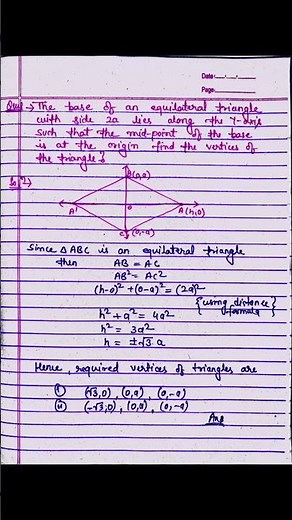 Date:
Page:
Ques → The base of an equilateral triangle
with side 2a lies along the Y-axis
such that the mid-point of the base
is at the origin find the vertices of
the triangle?
Sol →
B(0,a)
A'
o
A(h,0)
C(0,-a)
Since △ABC is an equilateral triangle
then AB = AC
AB² = AC²
(h-0)² + (0-a)² = (2a)²
{using distance formula}
h² + a² = 4a²
h² = 3a²
h = ±√3 a
Hence, required vertices of triangles are
(i) (√3,0), (0,a), (0,-a)
(ii) (-√3,0), (0,a), (0,-a)
Ans